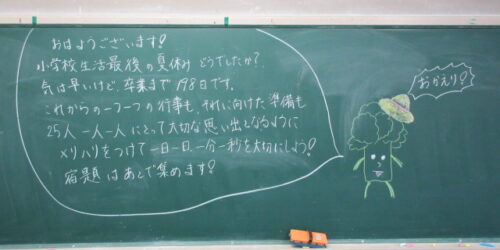 おはようございます!
小学校生活最後の夏休みどうでしたか?
気は早いけど、卒業まで198日です。
これからの一つ一つの行事も、それに向けた準備も
25人一人一人にとって大切な思い出となるように
メリハリをつけて一日一日、一分一秒を大切にしよう!
宿題はあとで集めます!
おかえり!